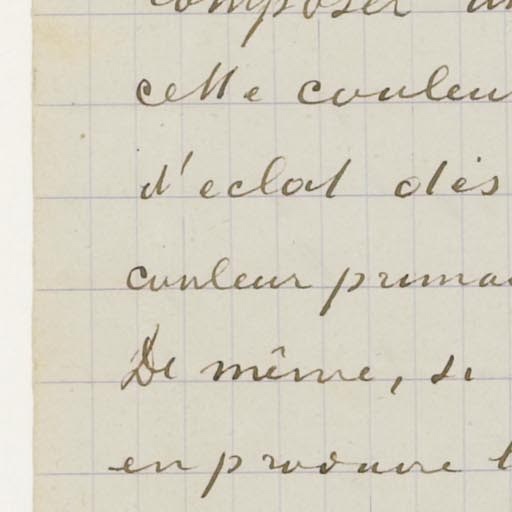 composer un
cette couleu
d'eclat dès
couleur prima
De même, si
en produire l